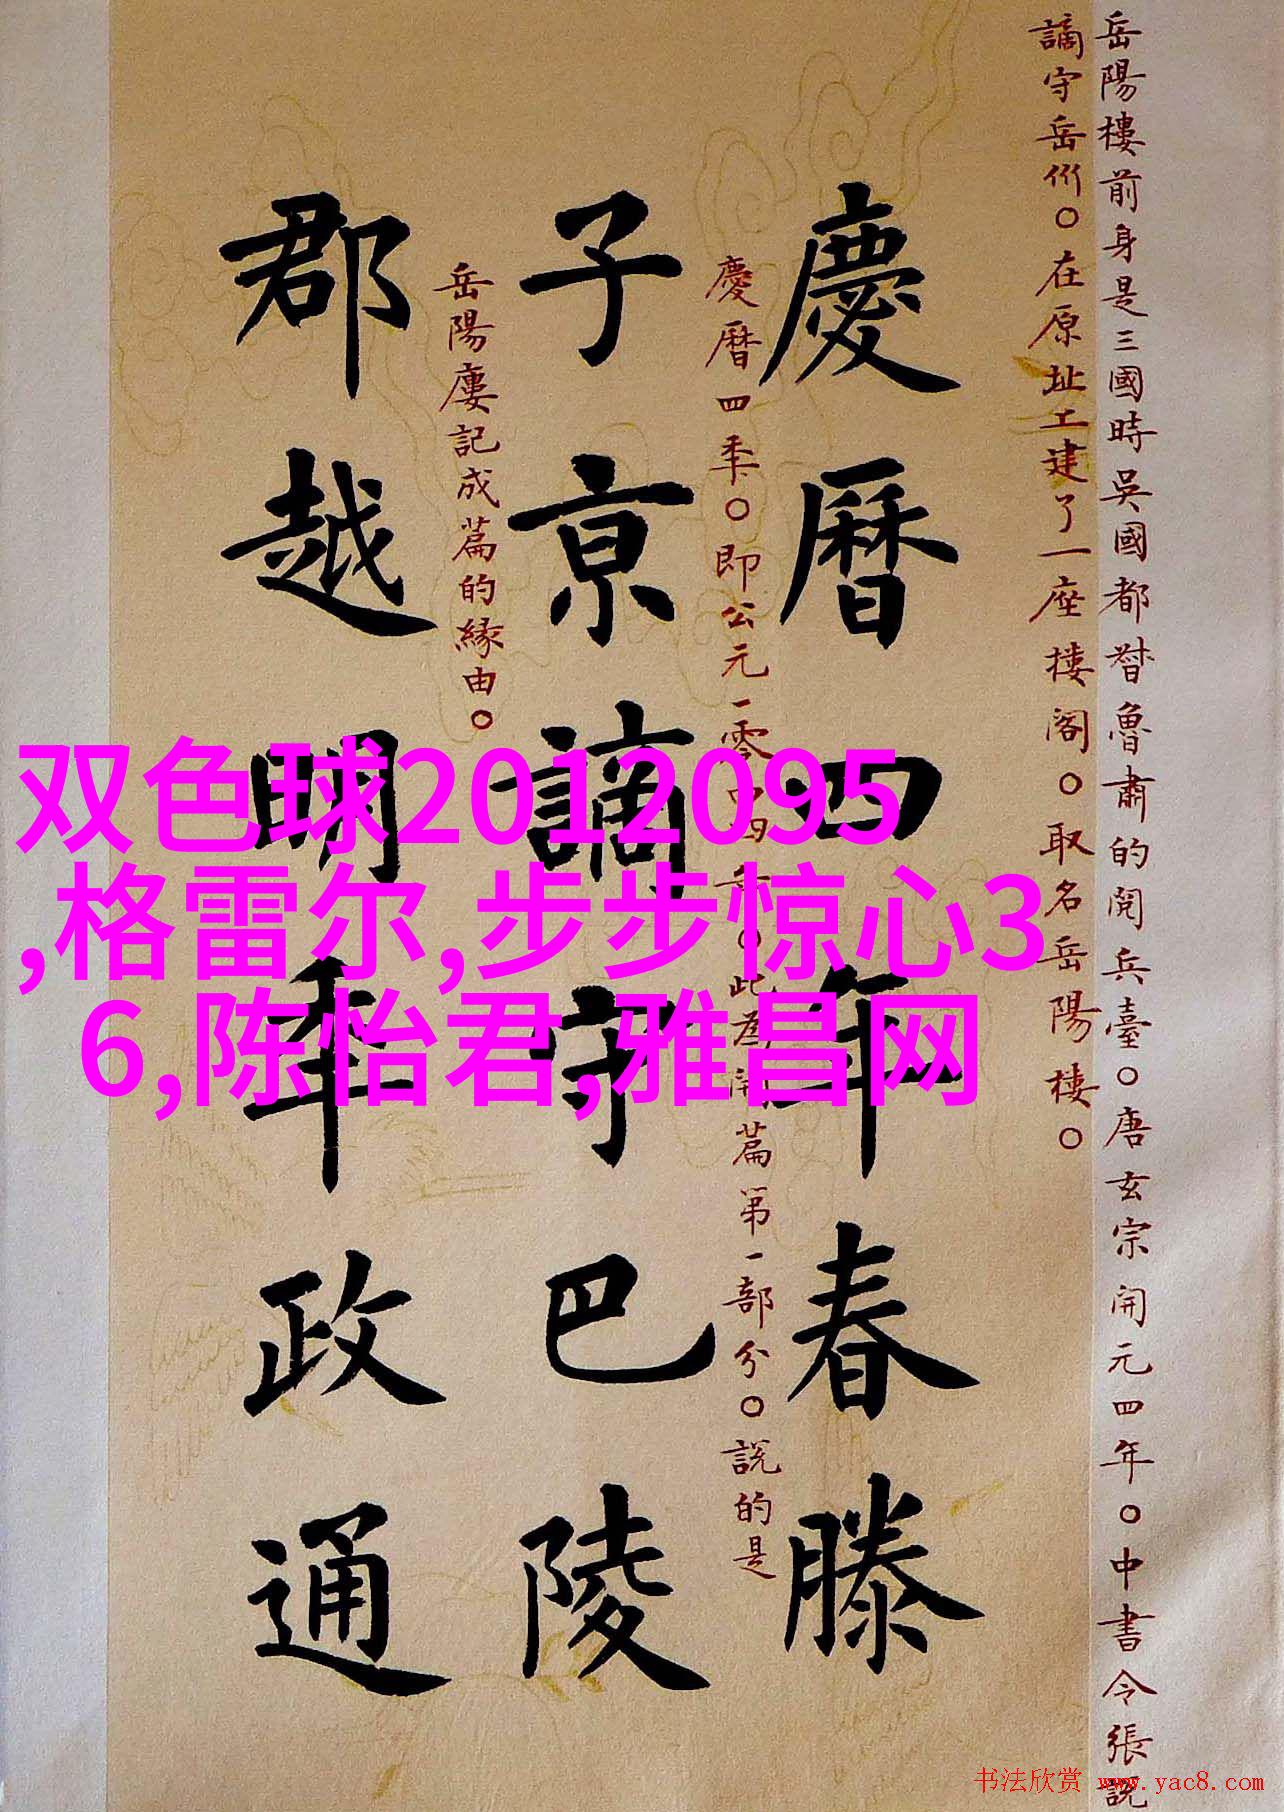 岳陽樓前身是三國時吳國都督魯肅的閱兵臺。唐玄宗開元四年。中書令張說
謫守岳州。在原址上建了一座樓閣。取名岳陽樓。
慶曆四年春滕
慶曆四年。即公元一零四四年。此為開篇第一部分。說的是
子京謫守巴陵
岳陽廔記成篇的緣由。
郡越明年政通
双色球2012095
,格雷尔,步步惊心3
6,陈怡君,雅昌网
书法欣赏 www.yac8.com